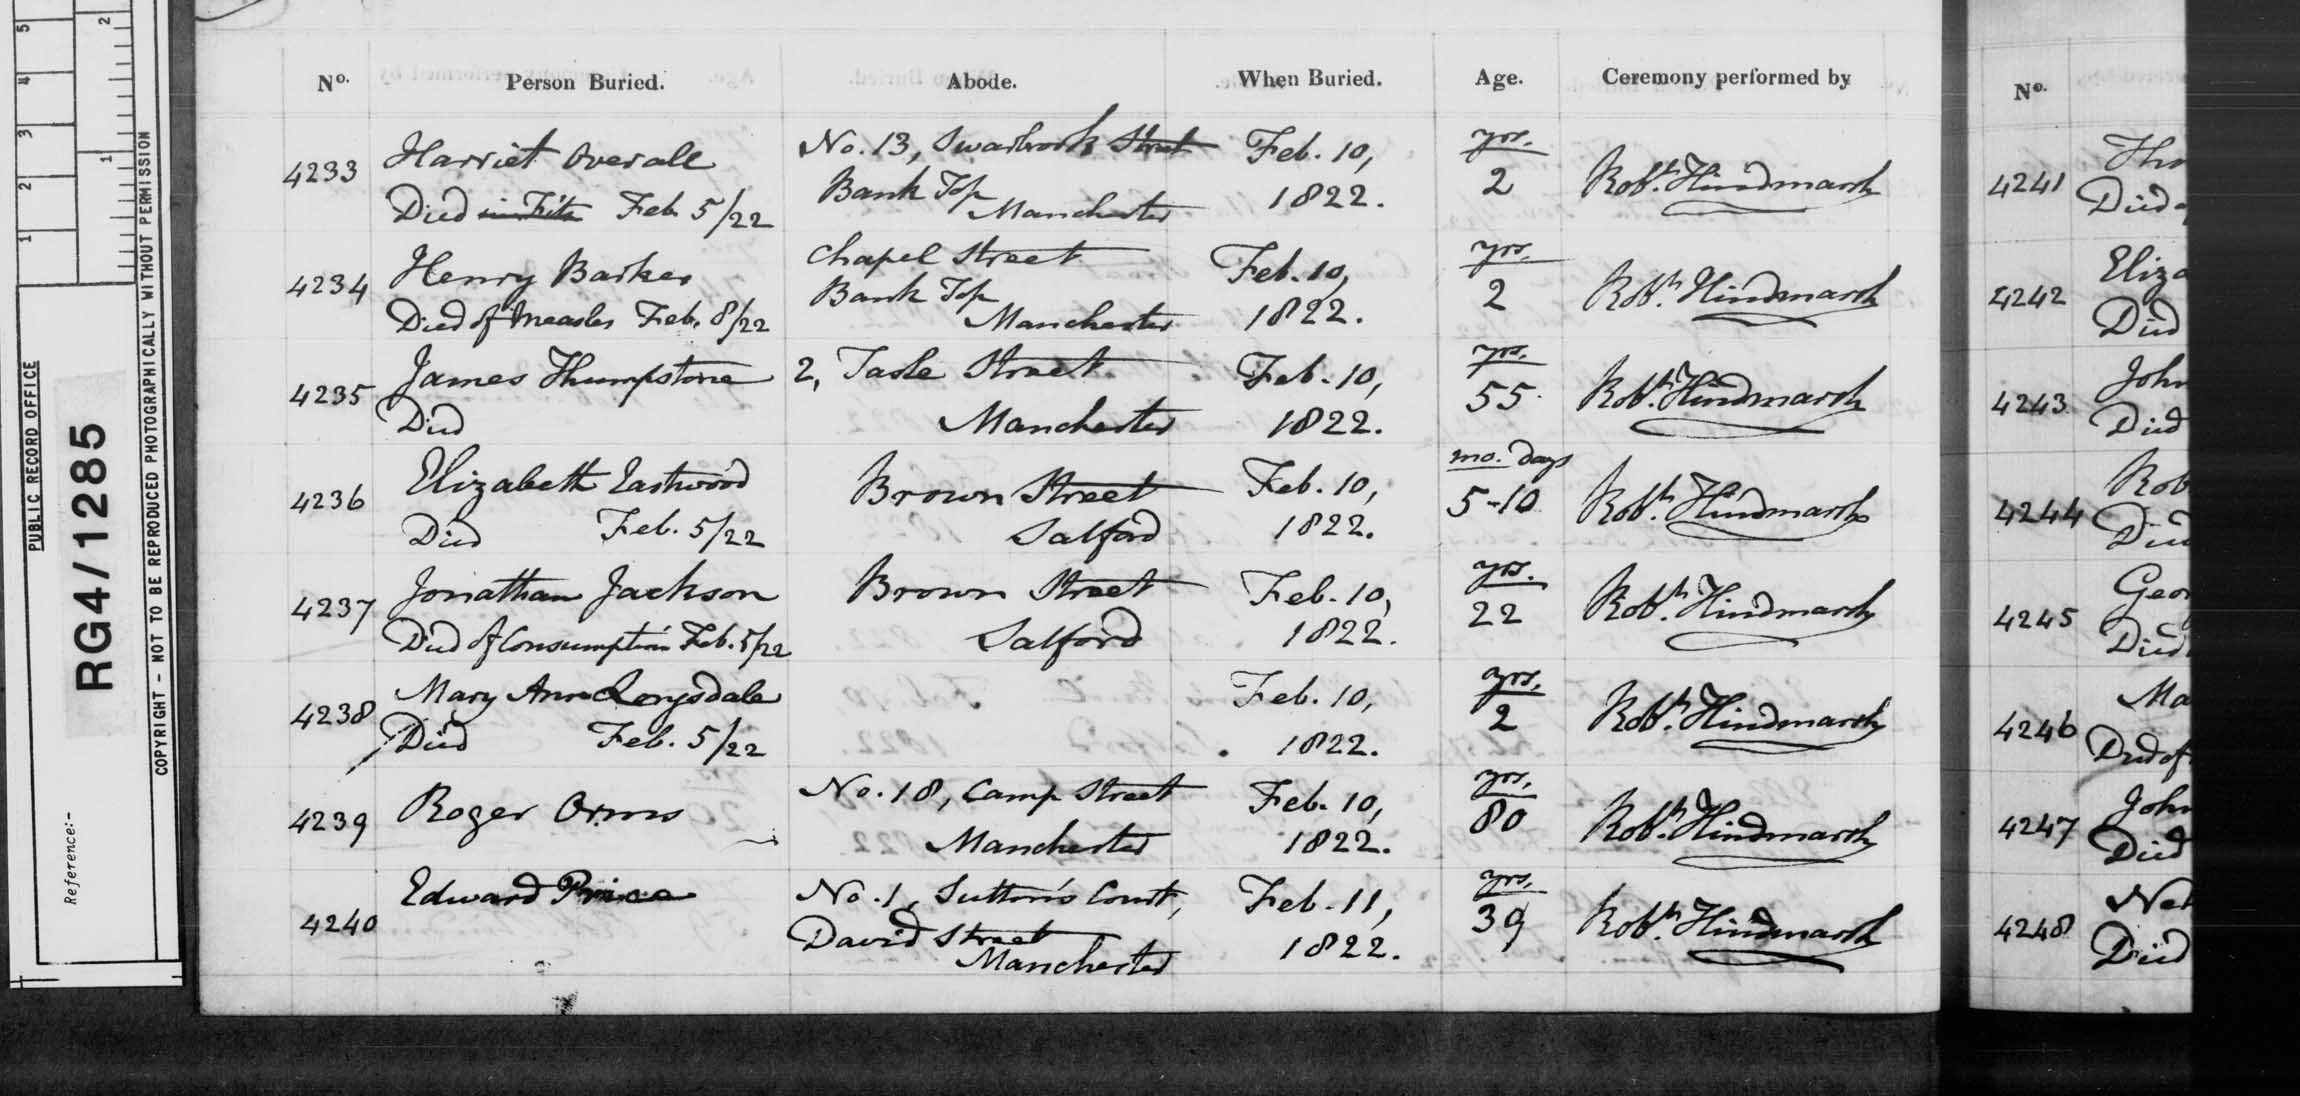 No. Person Buried. Abode. When Buried. Age. Ceremony performed by
4233 Harriet Overall No. 13, Swarbrook Street Feb. 10, yrs. Robt. Hindmarsh
Died in Fits Feb. 5/22 Bank Top Manchester 1822. 2
4234 Henry Barker Chapel Street Feb. 10, yrs. Robt. Hindmarsh
Died of Measles Feb. 8/22 Bank Top Manchester 1822. 2
4235 James Thumpstone 2, Tasle Street Feb. 10, yrs. Robt. Hindmarsh
Died Manchester 1822. 55
4236 Elizabeth Eastwood Brown Street Feb. 10, mo. days Robt. Hindmarsh
Died Feb. 5/22 Salford 1822. 5-10
4237 Jonathan Jackson Brown Street Feb. 10, yrs. Robt. Hindmarsh
Died of Consumption Feb. 5/22 Salford 1822. 22
4238 Mary Ann Longsdale Feb. 10, yrs. Robt. Hindmarsh
Died Feb. 5/22 1822. 2
4239 Roger Orms No. 18, Camp Street Feb. 10, yrs. Robt. Hindmarsh
Manchester 1822. 80
4240 Edward Price No. 1, Sutton's Court, Feb. 11, yrs. Robt. Hindmarsh
David Street Manchester 1822. 39
No.
4241 Tho
Died
4242 Eliza
Died
4243 John
Died
4244 Rob
Died
4245 Geor
Died
4246 Ma
Died of
4247 John
Died
4248
Died
PUBLIC RECORD OFFICE
Reference:-
RG4/1285
COPYRIGHT - NOT TO BE REPRODUCED PHOTOGRAPHICALLY WITHOUT PERMISSION
1 2 3 4 5
1 2